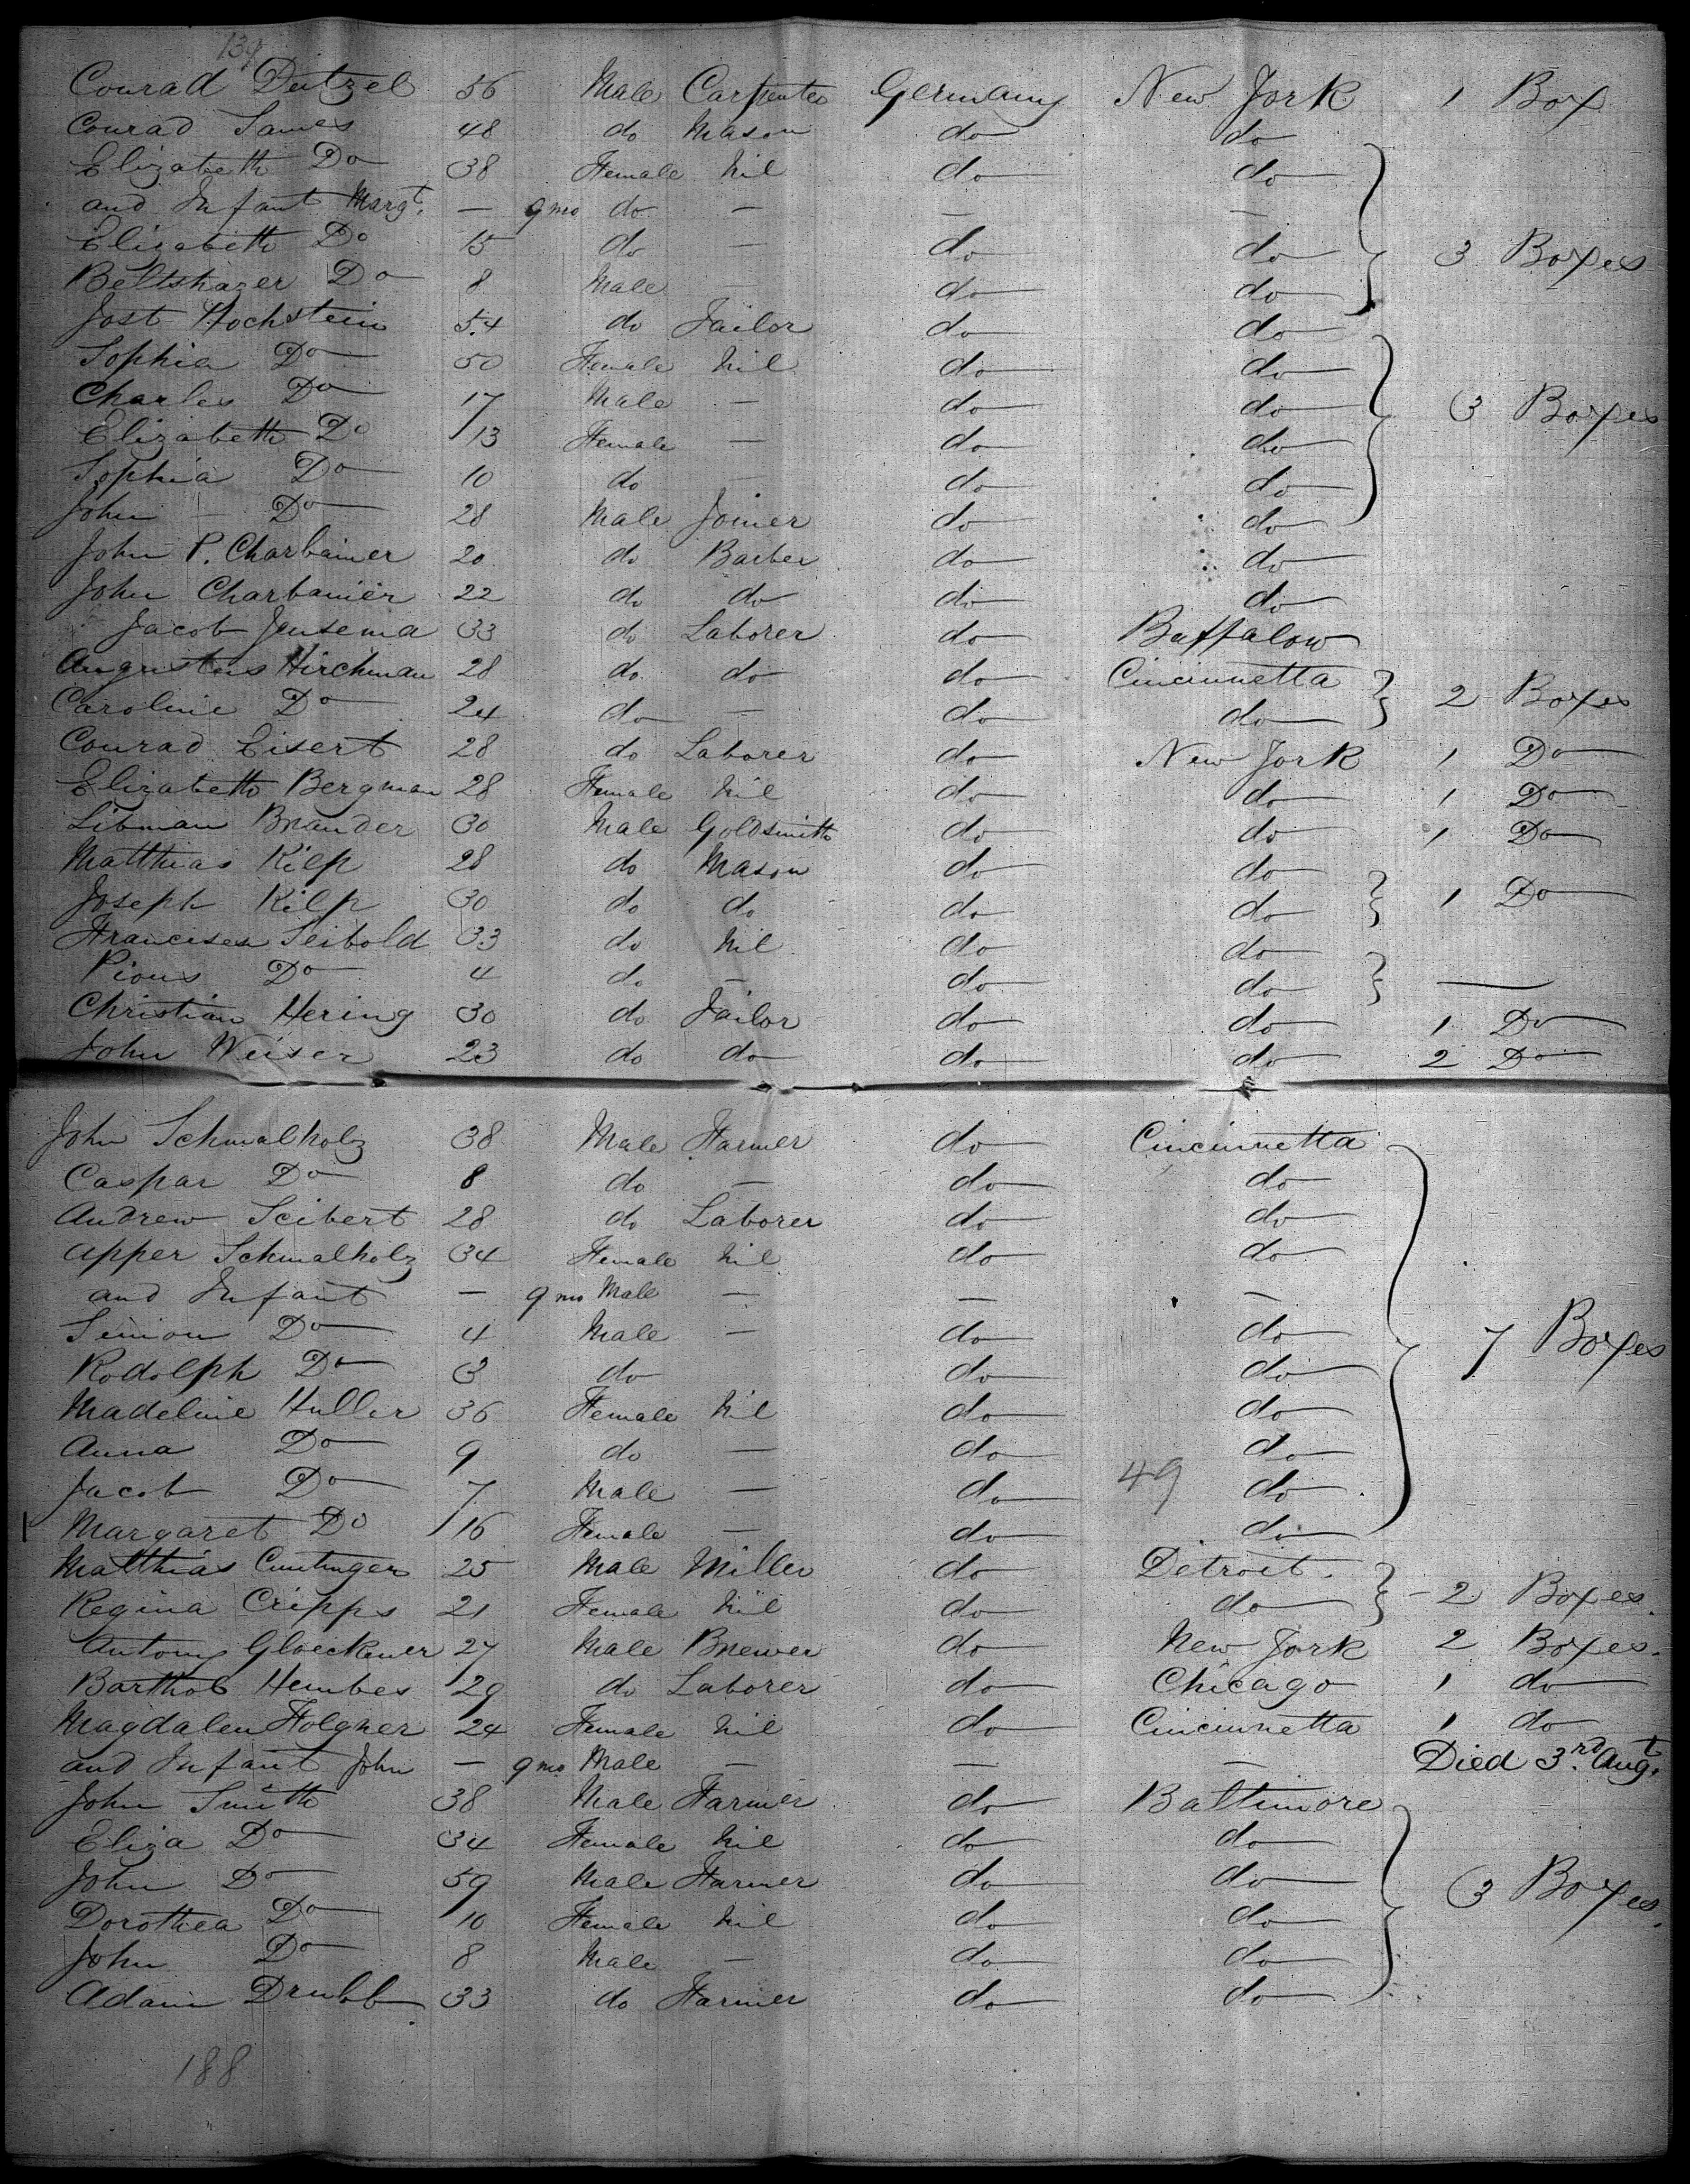 139
Conrad Deitzel 56 Male Carpenter Germany New York 1 Box
Conrad Sames 48 do Mason do do
Elizabeth Do 38 Female Nil do do
and Infant Margt. — 9 mo do — — —
Elizabeth Do 15 do — do do 3 Boxes
Beltshazer Do 8 Male — do do
Jost Hochstein 54 do Tailor do do
Sophia Do 50 Female Nil do do
Charles Do 17 Male — do do 3 Boxes
Elizabeth Do 13 Female — do do
Sophia Do 10 do — do do
John Do 28 Male Joiner do do
John P. Charbainer 20 do Barber do do
John Charbanier 22 do do do do
Jacob Jensema 33 do Laborer do Buffalow
Augustous Hirchman 28 do do do Cincinnetta
Caroline Do 24 do — do do 2 Boxes
Conrad Eisert 28 do Laborer do New York 1 Do
Elizabeth Bergman 28 Female Nil do do 1 Do
Libman Brander 30 Male Goldsmith do do 1 Do
Matthias Kilp 28 do Mason do do
Joseph Kilp 30 do do do do 1 Do
Francisca Seibold 33 do Nil do do
Pious Do 4 do — do do —
Christian Hering 30 do Tailor do do 1 Do
John Weiser 23 do do do do 2 Do
John Schmalholz 38 Male Farmer do Cincinnetta
Caspar Do 8 do — do do
Andrew Seibert 28 do Laborer do do
Apper Schmalholz 34 Female Nil do do
and Infant — 9 mo Male — — —
Simion Do 4 Male — do do 7 Boxes
Rodolph Do 3 do do do
Madeline Huller 36 Female Nil do do
Anna Do 9 do — do do
Jacob Do 7 Male — do 49 do
Margaret Do 16 Female — do do
Matthias 25 Male Miller do Detroit.
Regina Cripps 21 Female Nil do do 2 Boxes.
Antony Gloeckner 27 Male Brewer do New York 2 Boxes.
Barthol Hembes 29 do Laborer do Chicago 1 do
Magdalen Holgner 24 Female Nil do Cincinnetta 1 do
and Infant John — 9 mo Male — — — Died 3rd. Augt.
John Smith 38 Male Farmer do Baltimore
Eliza Do 34 Female Nil do do
John Do 59 Male Farmer do do 3 Boxes.
Dorothea Do 10 Female Nil do do
John Do 8 Male — do do
Adam Drubb 33 do Farmer do do
188